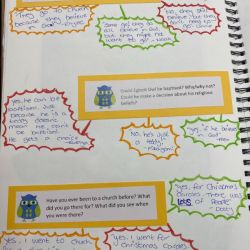 They go to church
because they believe
in God
Some
all believe in God
but they might not
want to go
No, they still
believe but they
don't need to
go.
Could Egbert Owl be baptised? Why/why not?
Could he make a decision about his religious
beliefs?
Yes, he can be
baptism. Just
because he is a
doesn't
mean he can't
be baptism.
He gets a choice
No, he's just
a teddy!
Yes, if he believes
in God
Have you ever been to a church before? What
did you go there for? What did you see when
you were there?
Yes, for Christmas
Carols. There was
LOTS of People
Yes, I went to church
Yes, I went for
Christmas Carols